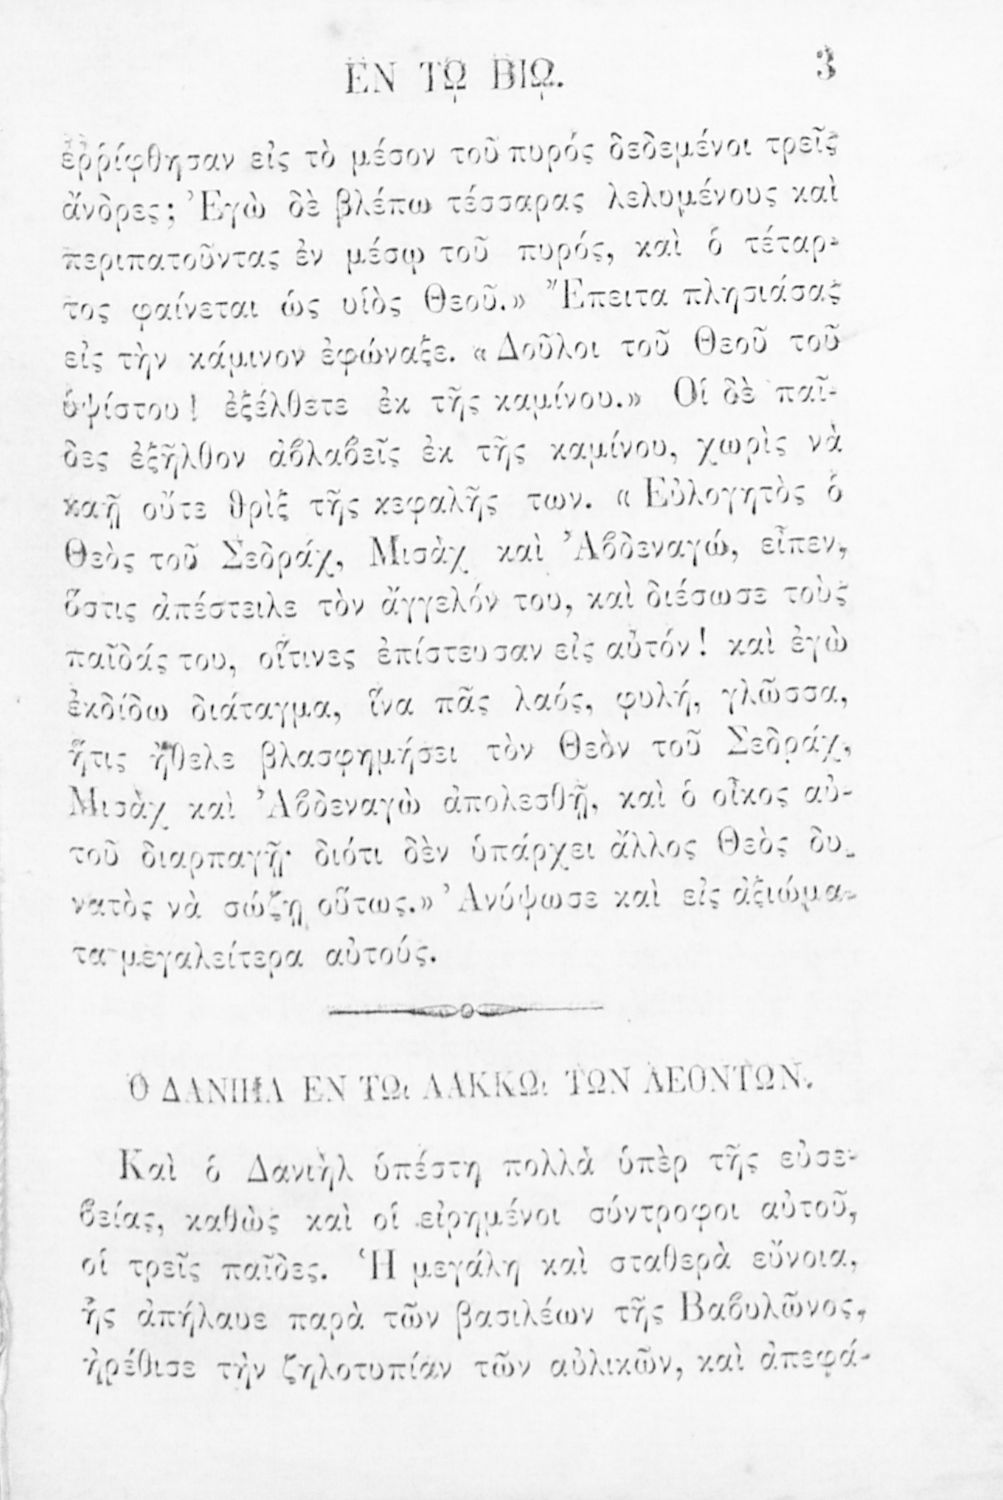 ΕΝ Τῼ ΒΙῼ. 3
ἐῤῥίφθησαν εἰς τὸ μέσον τοῦ πυρός δεδεμένοι τρεῖς
ἄνδρες; Ἐγὼ δὲ βλέπω τέσσαρας λελυμένους καὶ
περιπατοῦντας ἐν μέσῳ τοῦ πυρός, καὶ ὁ τέταρ-
τος φαίνεται ὡς υἱὸς Θεοῦ.» Ἔπειτα πλησιάσας
εἰς τὴν κάμινον ἐφώναξε. «Δοῦλοι τοῦ Θεοῦ τοῦ
ὑψίστου! ἐξέλθετε ἐκ τῆς καμίνου.» Οἱ δὲ παῖ-
δες ἐξῆλθον ἀβλαβεῖς ἐκ τῆς καμίνου, χωρὶς νὰ
καῇ οὔτε θρὶξ τῆς κεφαλῆς των. «Εὐλογητὸς ὁ
Θεὸς τοῦ Σεδράχ, Μισὰχ καὶ Ἀβδεναγώ, εἶπεν,
ὅστις ἀπέστειλε τὸν ἄγγελόν του, καὶ διέσωσε τοὺς
παῖδάς του, οἵτινες ἐπίστευσαν εἰς αὐτόν! καὶ ἐγὼ
ἐκδίδω διάταγμα, ἵνα πᾶς λαός, φυλή, γλῶσσα,
ἥτις ἤθελε βλασφημήσει τὸν Θεὸν τοῦ Σεδράχ,
Μισὰχ καὶ Ἀβδεναγὼ ἀπολεσθῇ, καὶ ὁ οἶκος αὐ-
τοῦ διαρπαγῇ· διότι δὲν ὑπάρχει ἄλλος Θεὸς δυ-
νατὸς νὰ σώζῃ οὕτως.» Ἀνύψωσε καὶ εἰς ἀξιώμα-
τα μεγαλείτερα αὐτούς.
Ὁ ΔΑΝΙΗΛ ΕΝ ΤΩι ΛΑΚΚΩι ΤΩΝ ΛΕΟΝΤΩΝ.
Καὶ ὁ Δανιὴλ ὑπέστη πολλὰ ὑπὲρ τῆς εὐσε-
βείας, καθὼς καὶ οἱ εἰρημένοι σύντροφοι αὐτοῦ,
οἱ τρεῖς παῖδες. Ἡ μεγάλη καὶ σταθερὰ εὔνοια,
ἧς ἀπήλαυε παρὰ τῶν βασιλέων τῆς Βαβυλῶνος,
ἠρέθισε τὴν ζηλοτυπίαν τῶν αὐλικῶν, καὶ ἀπεφά-